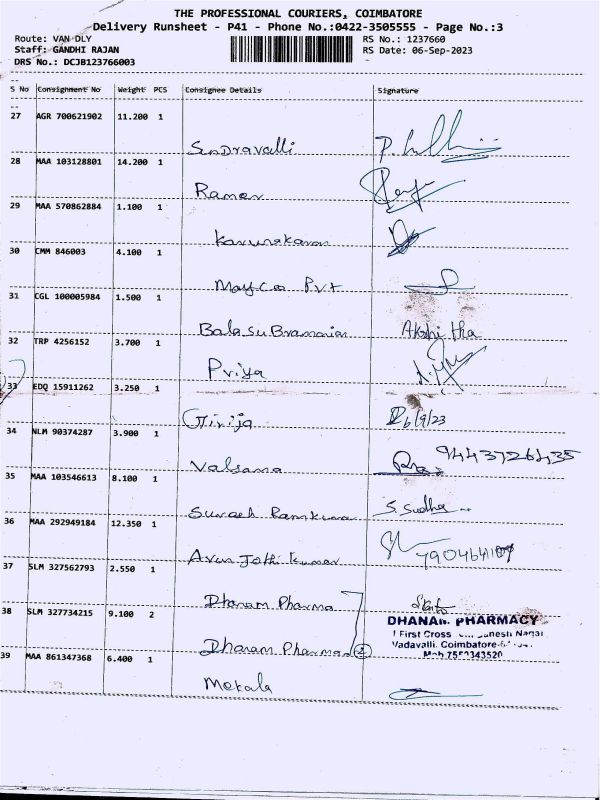 THE PROFESSIONAL COURIERS, COIMBATORE
Delivery Runsheet - P41 - Phone No.:0422-3505555 - Page No.:3
Route: VAN DLY RS No.: 1237660
Staff: GANDHI RAJAN RS Date: 06-Sep-2023
DRS No.: DCJB123766003
S No Consignment No Weight PCS Consignee Details Signature
27 AGR 700621902 11.200 1
Sendravalli
28 MAA 103128801 14.200 1
Raman
29 MAA 570862884 1.100 1
Karunakaran
30 CMM 846003 4.100 1
Mayco Pvt
31 CGL 100005984 1.500 1
BalasuBramanian Akshitha
32 TRP 4256152 3.700 1
Priya
33 EDQ 15911262 3.250 1
Girija 6/9/23
34 NLM 90374287 3.900 1
Valsama 9443726435
35 MAA 103546613 8.100 1
Suresh Ramkumar S. Sudha
36 MAA 292949184 12.350 1
Arun Jothi Kumar
37 SLM 327562793 2.550 1
Dhanam Pharma
38 SLM 327734215 9.100 2
DHANAM PHARMACY
1 First Cross Ganesh Nagar
Vadavalli, Coimbatore-
Dharam Pharma 2 Mob
39 MAA 861347368 6.400 1
Mekala